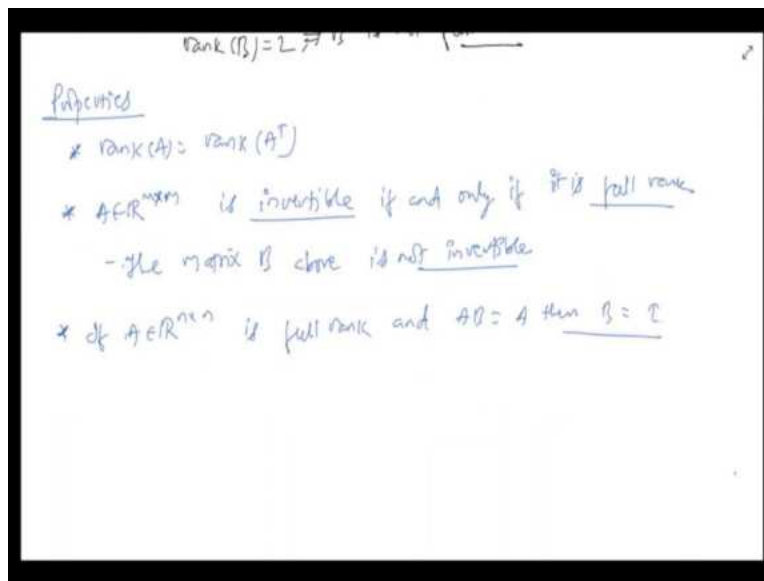 rank(B)=2 ⇒ B is not
Properties
* rank(A) = rank(Aᵀ)
* A∈ℝⁿˣⁿ is invertible if and only if it is full rank
- The matrix B above is not invertible
* If A∈ℝⁿˣⁿ is full rank and AB = A then B = I